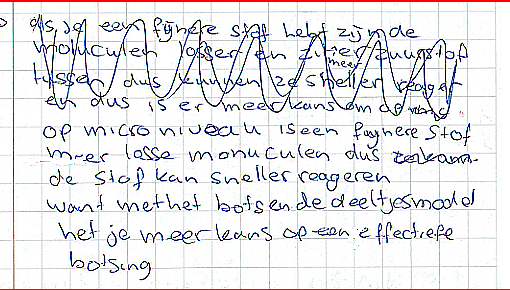 dus, je een fijnere stof hebt zijn de
moluculen losser en zit er zuurstof
tussen dus kunnen ze sneller reager
en dus is er meer kans om de
op micro niveau is een feynere stof
meer losse monuculen dus
de stof kan sneller reageren
want met het botsende deeltjesmodel
het je meer kans op een effectiefe
botsing